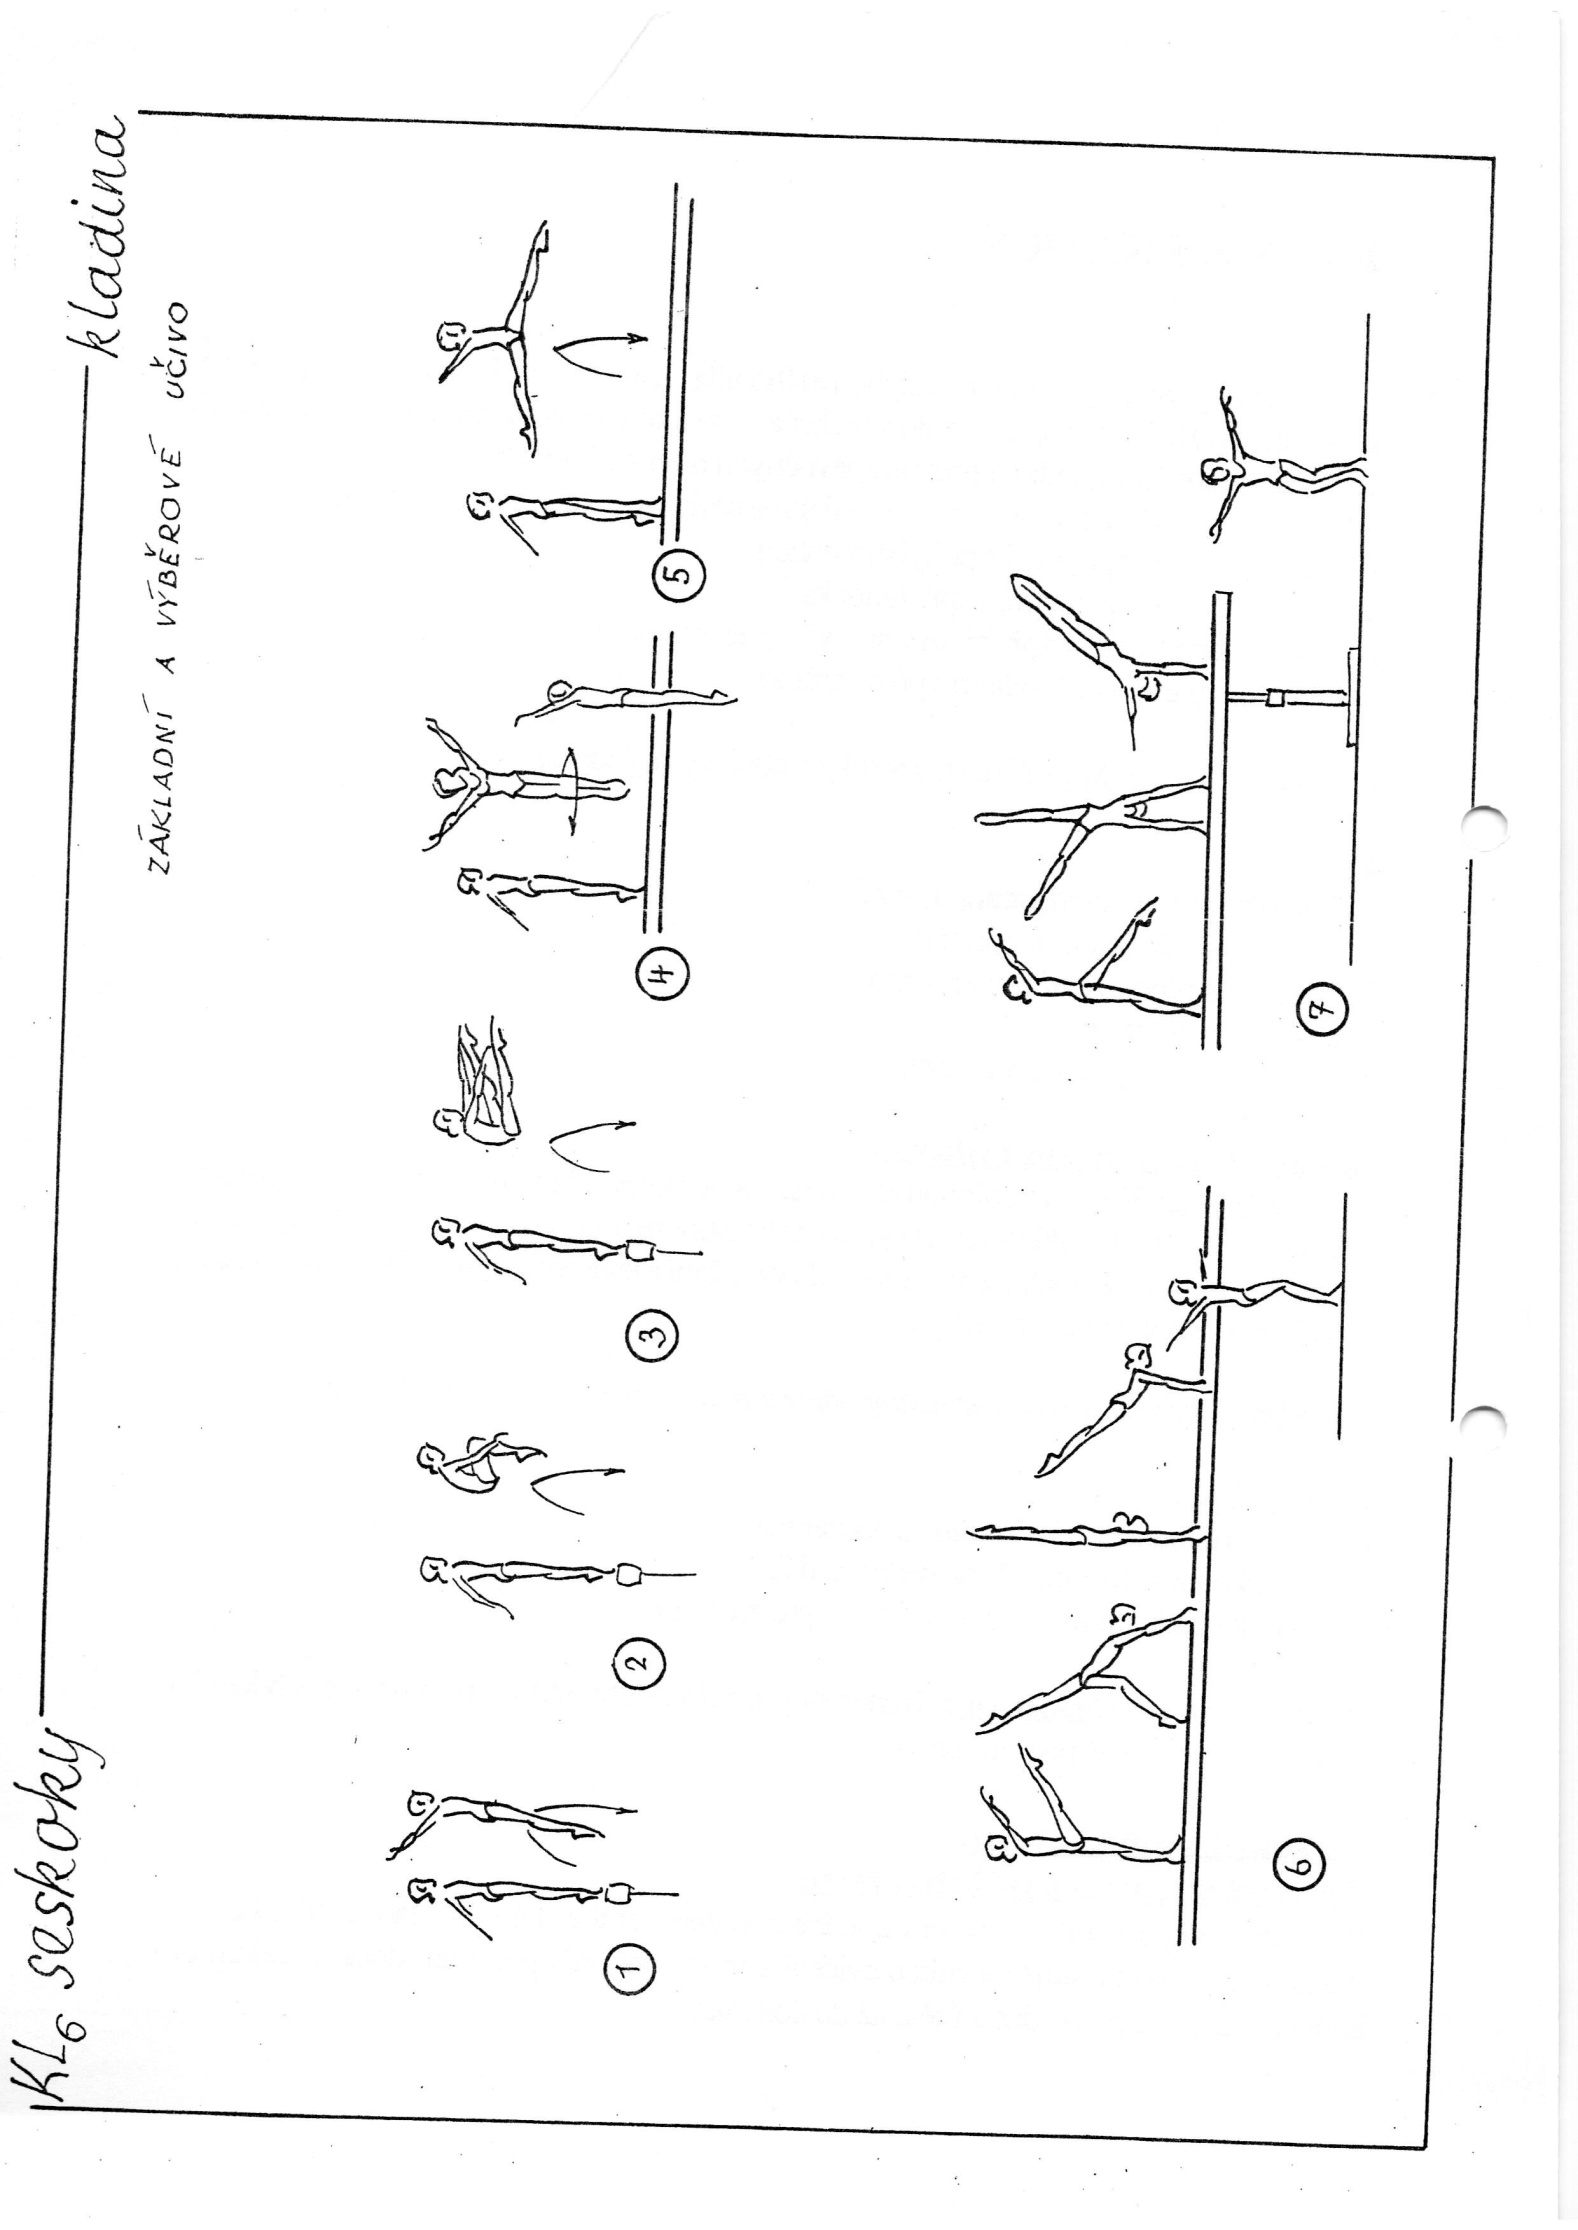 KL6 seskoky kladina
ZÁKLADNÍ A VÝBĚROVÉ UČIVO
1
2
3
4
5
6
7